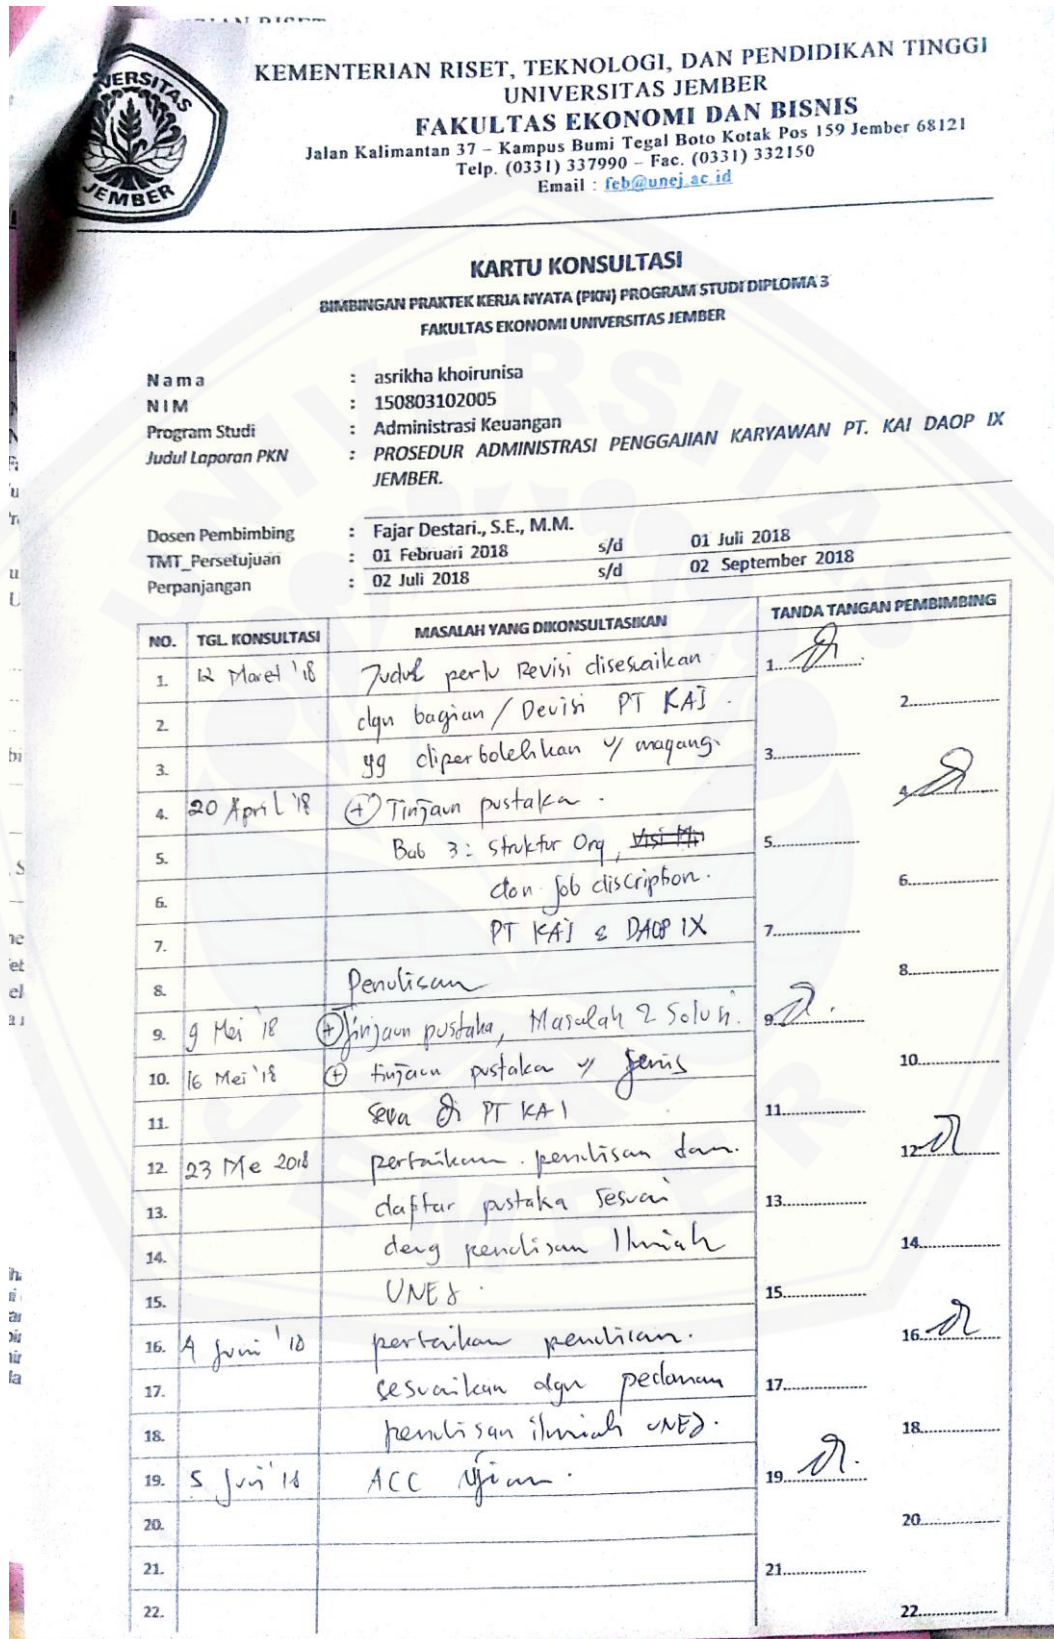 UNIVERSITAS
JEMBER
KEMENTERIAN RISET, TEKNOLOGI, DAN PENDIDIKAN TINGGI
UNIVERSITAS JEMBER
FAKULTAS EKONOMI DAN BISNIS
Jalan Kalimantan 37 – Kampus Bumi Tegal Boto Kotak Pos 159 Jember 68121
Telp. (0331) 337990 – Fac. (0331) 332150
Email : feb@unej.ac.id
KARTU KONSULTASI
BIMBINGAN PRAKTEK KERJA NYATA (PKN) PROGRAM STUDI DIPLOMA 3
FAKULTAS EKONOMI UNIVERSITAS JEMBER
Nama : asrikha khoirunisa
NIM : 150803102005
Program Studi : Administrasi Keuangan
Judul Laporan PKN : PROSEDUR ADMINISTRASI PENGGAJIAN KARYAWAN PT. KAI DAOP IX
JEMBER.
Dosen Pembimbing : Fajar Destari., S.E., M.M.
TMT_Persetujuan : 01 Februari 2018 s/d 01 Juli 2018
Perpanjangan : 02 Juli 2018 s/d 02 September 2018
NO. TGL. KONSULTASI MASALAH YANG DIKONSULTASIKAN TANDA TANGAN PEMBIMBING
1. 12 Maret '18 Judul perlu Revisi disesuaikan 1.
2. dgn bagian / Devisi PT KAI . 2.
3. yg diperbolehkan u/ magang. 3.
4. 20 April '18 (+) Tinjaun pustaka . 4.
5. Bab 3 : Struktur Org, 5.
6. dan job discription. 6.
7. PT KAI & DAOP IX 7.
8. Penulisan 8.
9. 9 Mei '18 (+) Tinjaun pustaka, Masalah 2 Solusi. 9.
10. 16 Mei '18 (+) tinjaun pustaka u/ Jenis 10.
11. sewa di PT KAI 11.
12. 23 Me 2018 perbaikan penulisan dan. 12.
13. daftar pustaka sesuai 13.
14. deng penulisan Ilmiah 14.
15. UNEJ . 15.
16. 4 Juni '18 perbaikan penulisan. 16.
17. sesuaikan dgn pedoman 17.
18. penulisan ilmiah UNEJ. 18.
19. 5 Juni '18 ACC Ujian . 19.
20. 20.
21. 21.
22. 22.